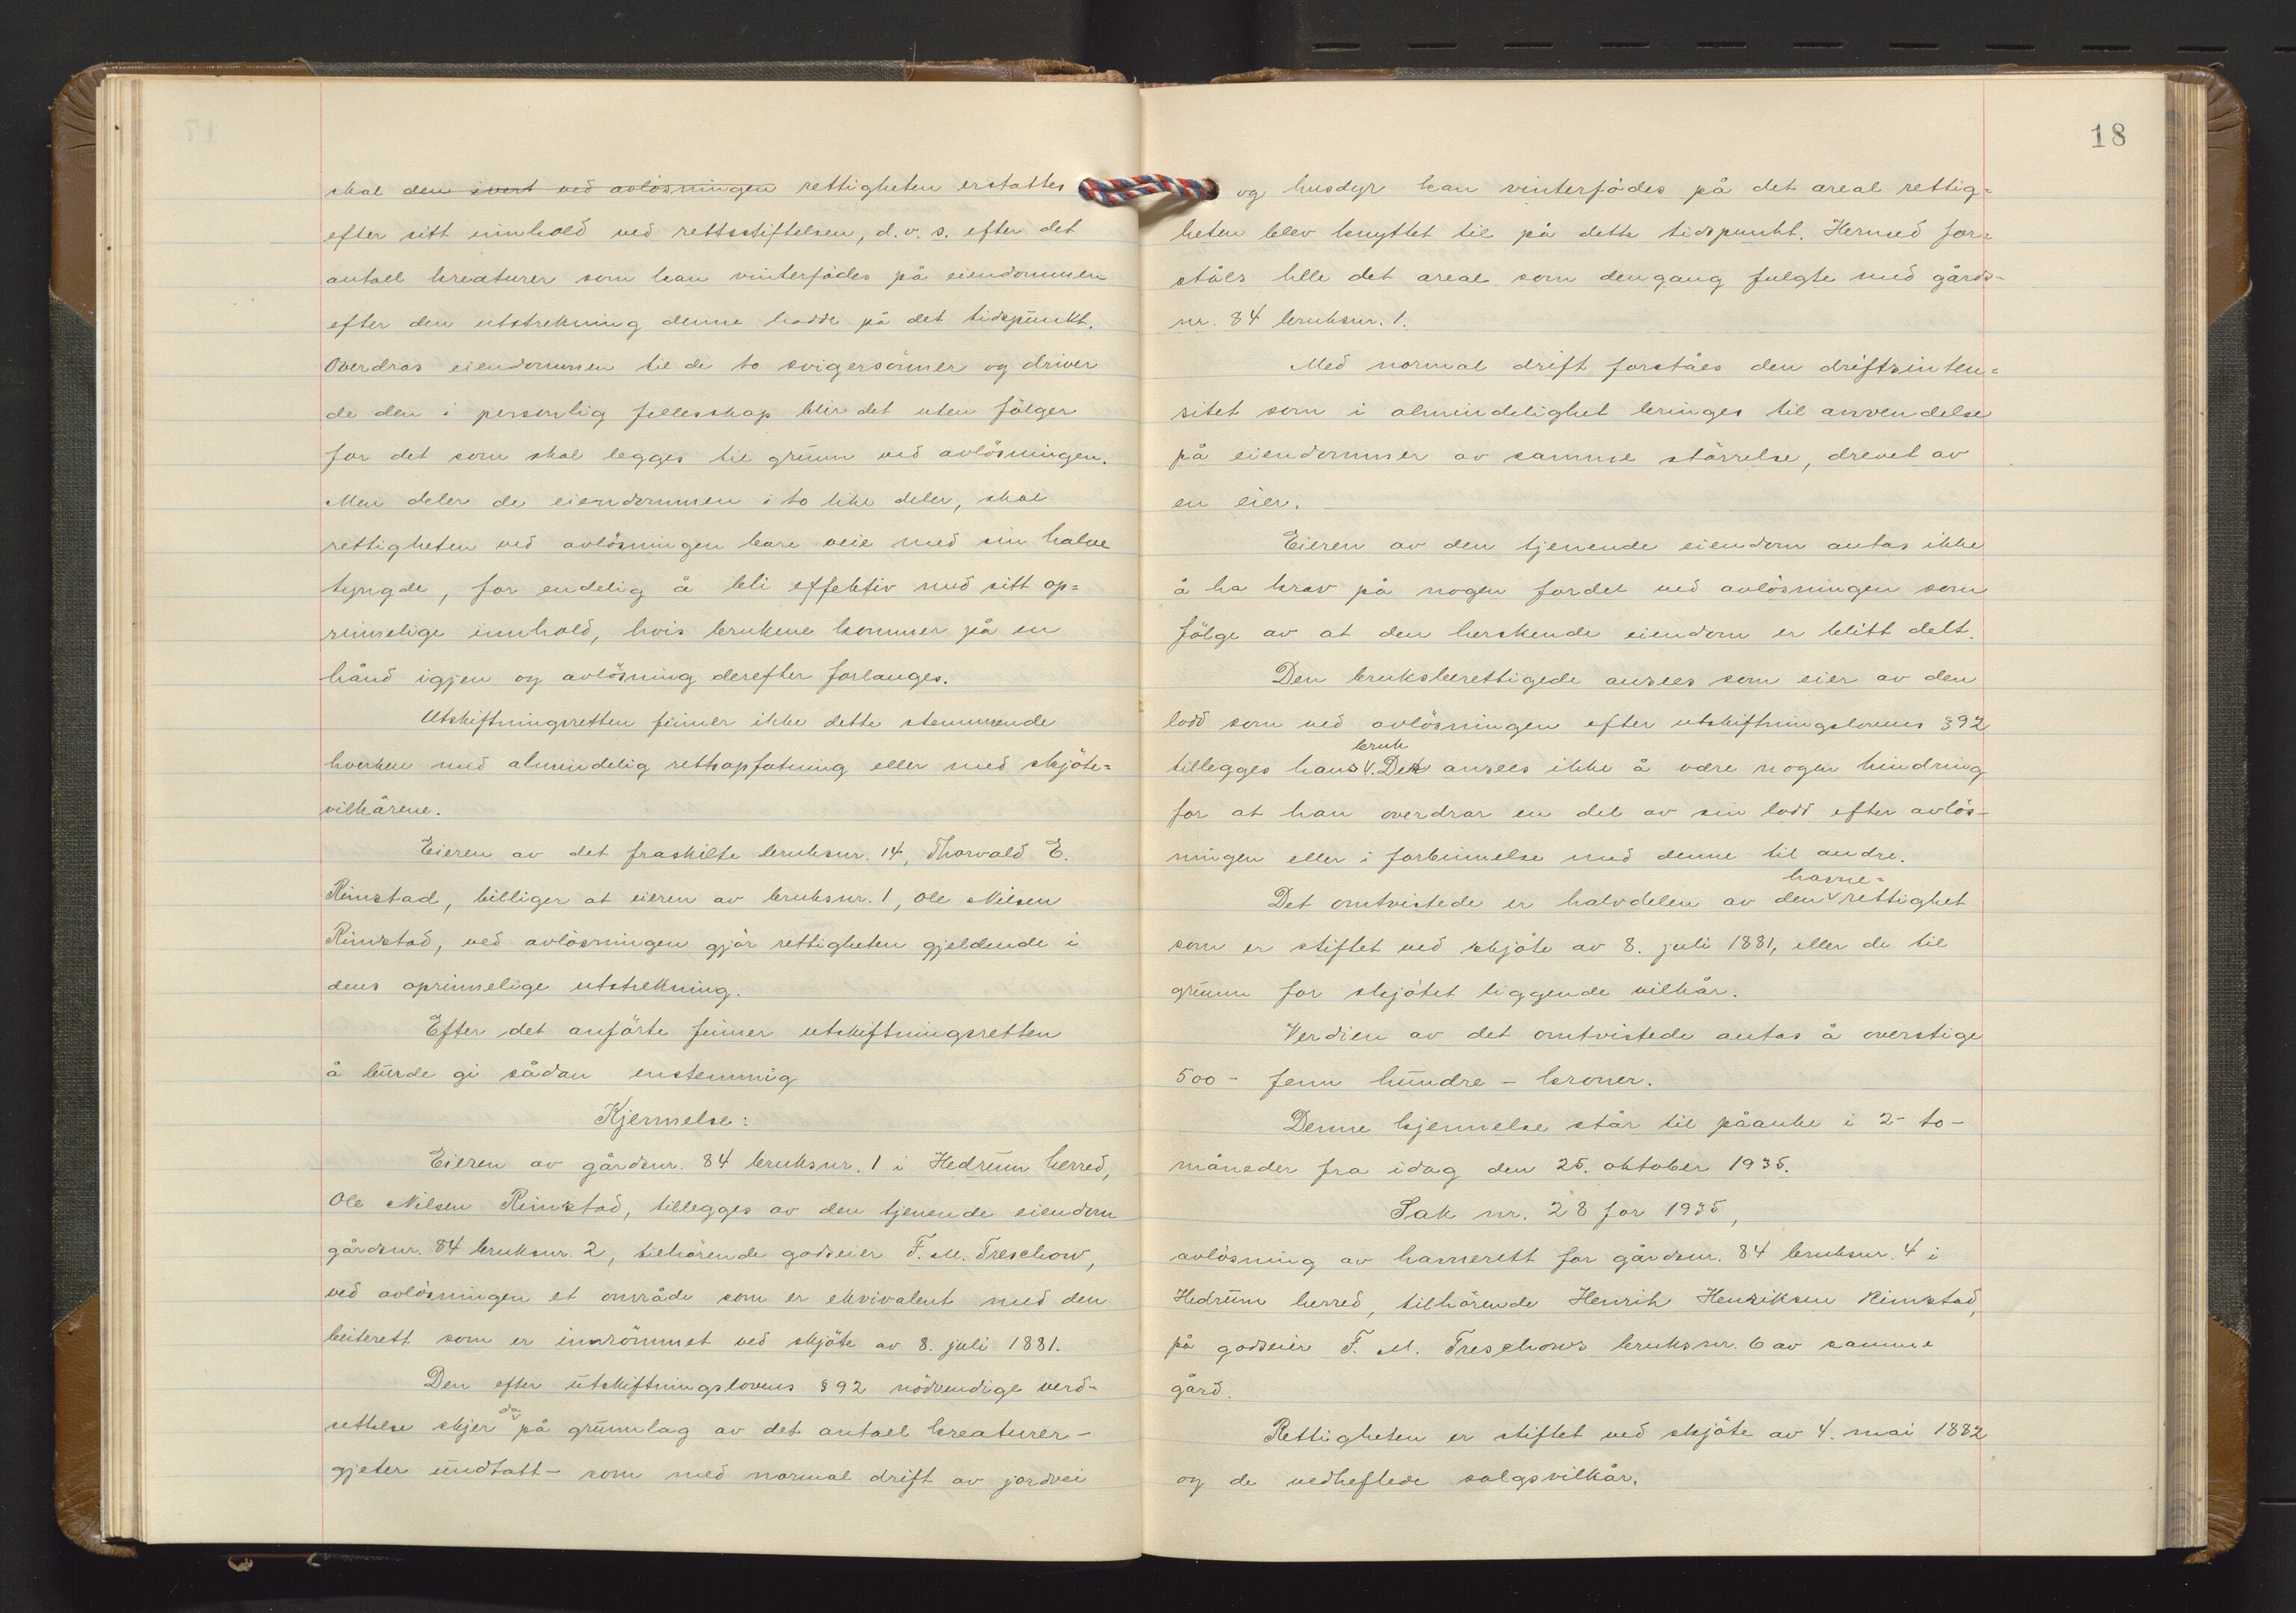 skal den svort ved avlösningen rettigheten erstattes
efter sitt innhold ved rettsstiftelsen, d.v.s. efter det
antall kreaturer som kan vinterfödes på eiendommen
efter den utstrekning denne hadde på det tidspunkt.
Overdras eiendommen til de to svigersönner og driver
de den i personlig fellesskap blir det uten fölger
for det som skal legges til grunn ved avlösningen.
Men deler de eiendommen i to like deler, skal
rettigheten ved avlösningen bare veie med sin halve
tyngde, for endelig å bli effektiv med sitt op=
rinnelige innhold, hvis brukene kommer på en
hånd igjen og avlösning derefter forlanges.
Utskiftningsretten finner ikke dette stemmende
hverken med almindelig rettsopfatning eller med skjöte=
vilkårene.
Eieren av det fraskilte bruksnr. 14, Thorvald E.
Rimstad, billiger at eieren av bruksnr. 1, Ole Nilsen
Rimstad, ved avlösningen gjör rettigheten gjeldende i
dens oprinnelige utstrekning.
Efter det anförte finner utskiftningsretten
å burde gi sådan enstemmig
Kjennelse:
Eieren av gårdsnr. 84 bruksnr. 1 i Hedrum herred,
Ole Nilsen Rimstad, tillegges av den tjenende eiendom
gårdsnr. 84 bruksnr. 2, tilhörende godseier F. M. Treschow,
ved avlösningen et område som er ekvivalent med den
beiterett som er innrömmet ved skjöte av 8. juli 1881.
Den efter utskiftningslovens § 92 nödvendige verd-
da
settelse skjer på grunnlag av det antall kreaturer -
gjeter undtatt - som med normal drift av jordvei
18
og husdyr kan vinterfödes på det areal rettig=
heten blev knyttet til på dette tidspunkt. Hermed for=
ståes hele det areal som dengang fulgte med gårds-
nr. 84 bruksnr. 1.
Med normal drift forståes den driftsinten=
sitet som i almindelighet bringes til anvendelse
på eiendommer av samme störrelse, drevet av
en eier.
Eieren av den tjenende eiendom antas ikke
å ha krav på nogen fordel ved avlösningen som
fölge av at den herskende eiendom er blitt delt.
Den bruksberettigede ansees som eier av den
lodd som ved avlösningen efter utskiftningslovens § 92
bruk
tillegges hans. Det ansees ikke å være nogen hindring
for at han overdrar en del av sin lodd efter avlös-
ningen eller i forbinnelse med denne til andre.
havne=
Det omtvistede er halvdelen av den rettighet
som er stiftet ved skjöte av 8. juli 1881, eller de til
grunn for skjötet liggende vilkår.
Verdien av det omtvistede antas å overstige
500 - fem hundre - kroner.
Denne kjennelse står til påanke i 2 - to -
måneder fra idag den 25. oktober 1935.
Sak nr. 28 for 1935,
avlösning av havnerett for gårdsnr. 84 bruksnr. 4 i
Hedrum herred, tilhörende Henrik Henriksen Rimstad,
på godseier F. M. Treschows bruksnr. 6 av samme
gård.
Rettigheten er stiftet ved skjöte av 4. mai 1882
og de vedheftede salgsvilkår.